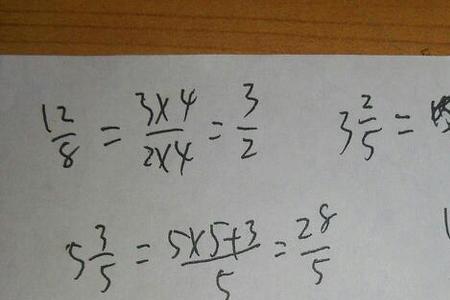 12/8 = 3×4/2×4 = 3/2    3 2/5 =
5 3/5 = 5×5+3/5 = 28/5